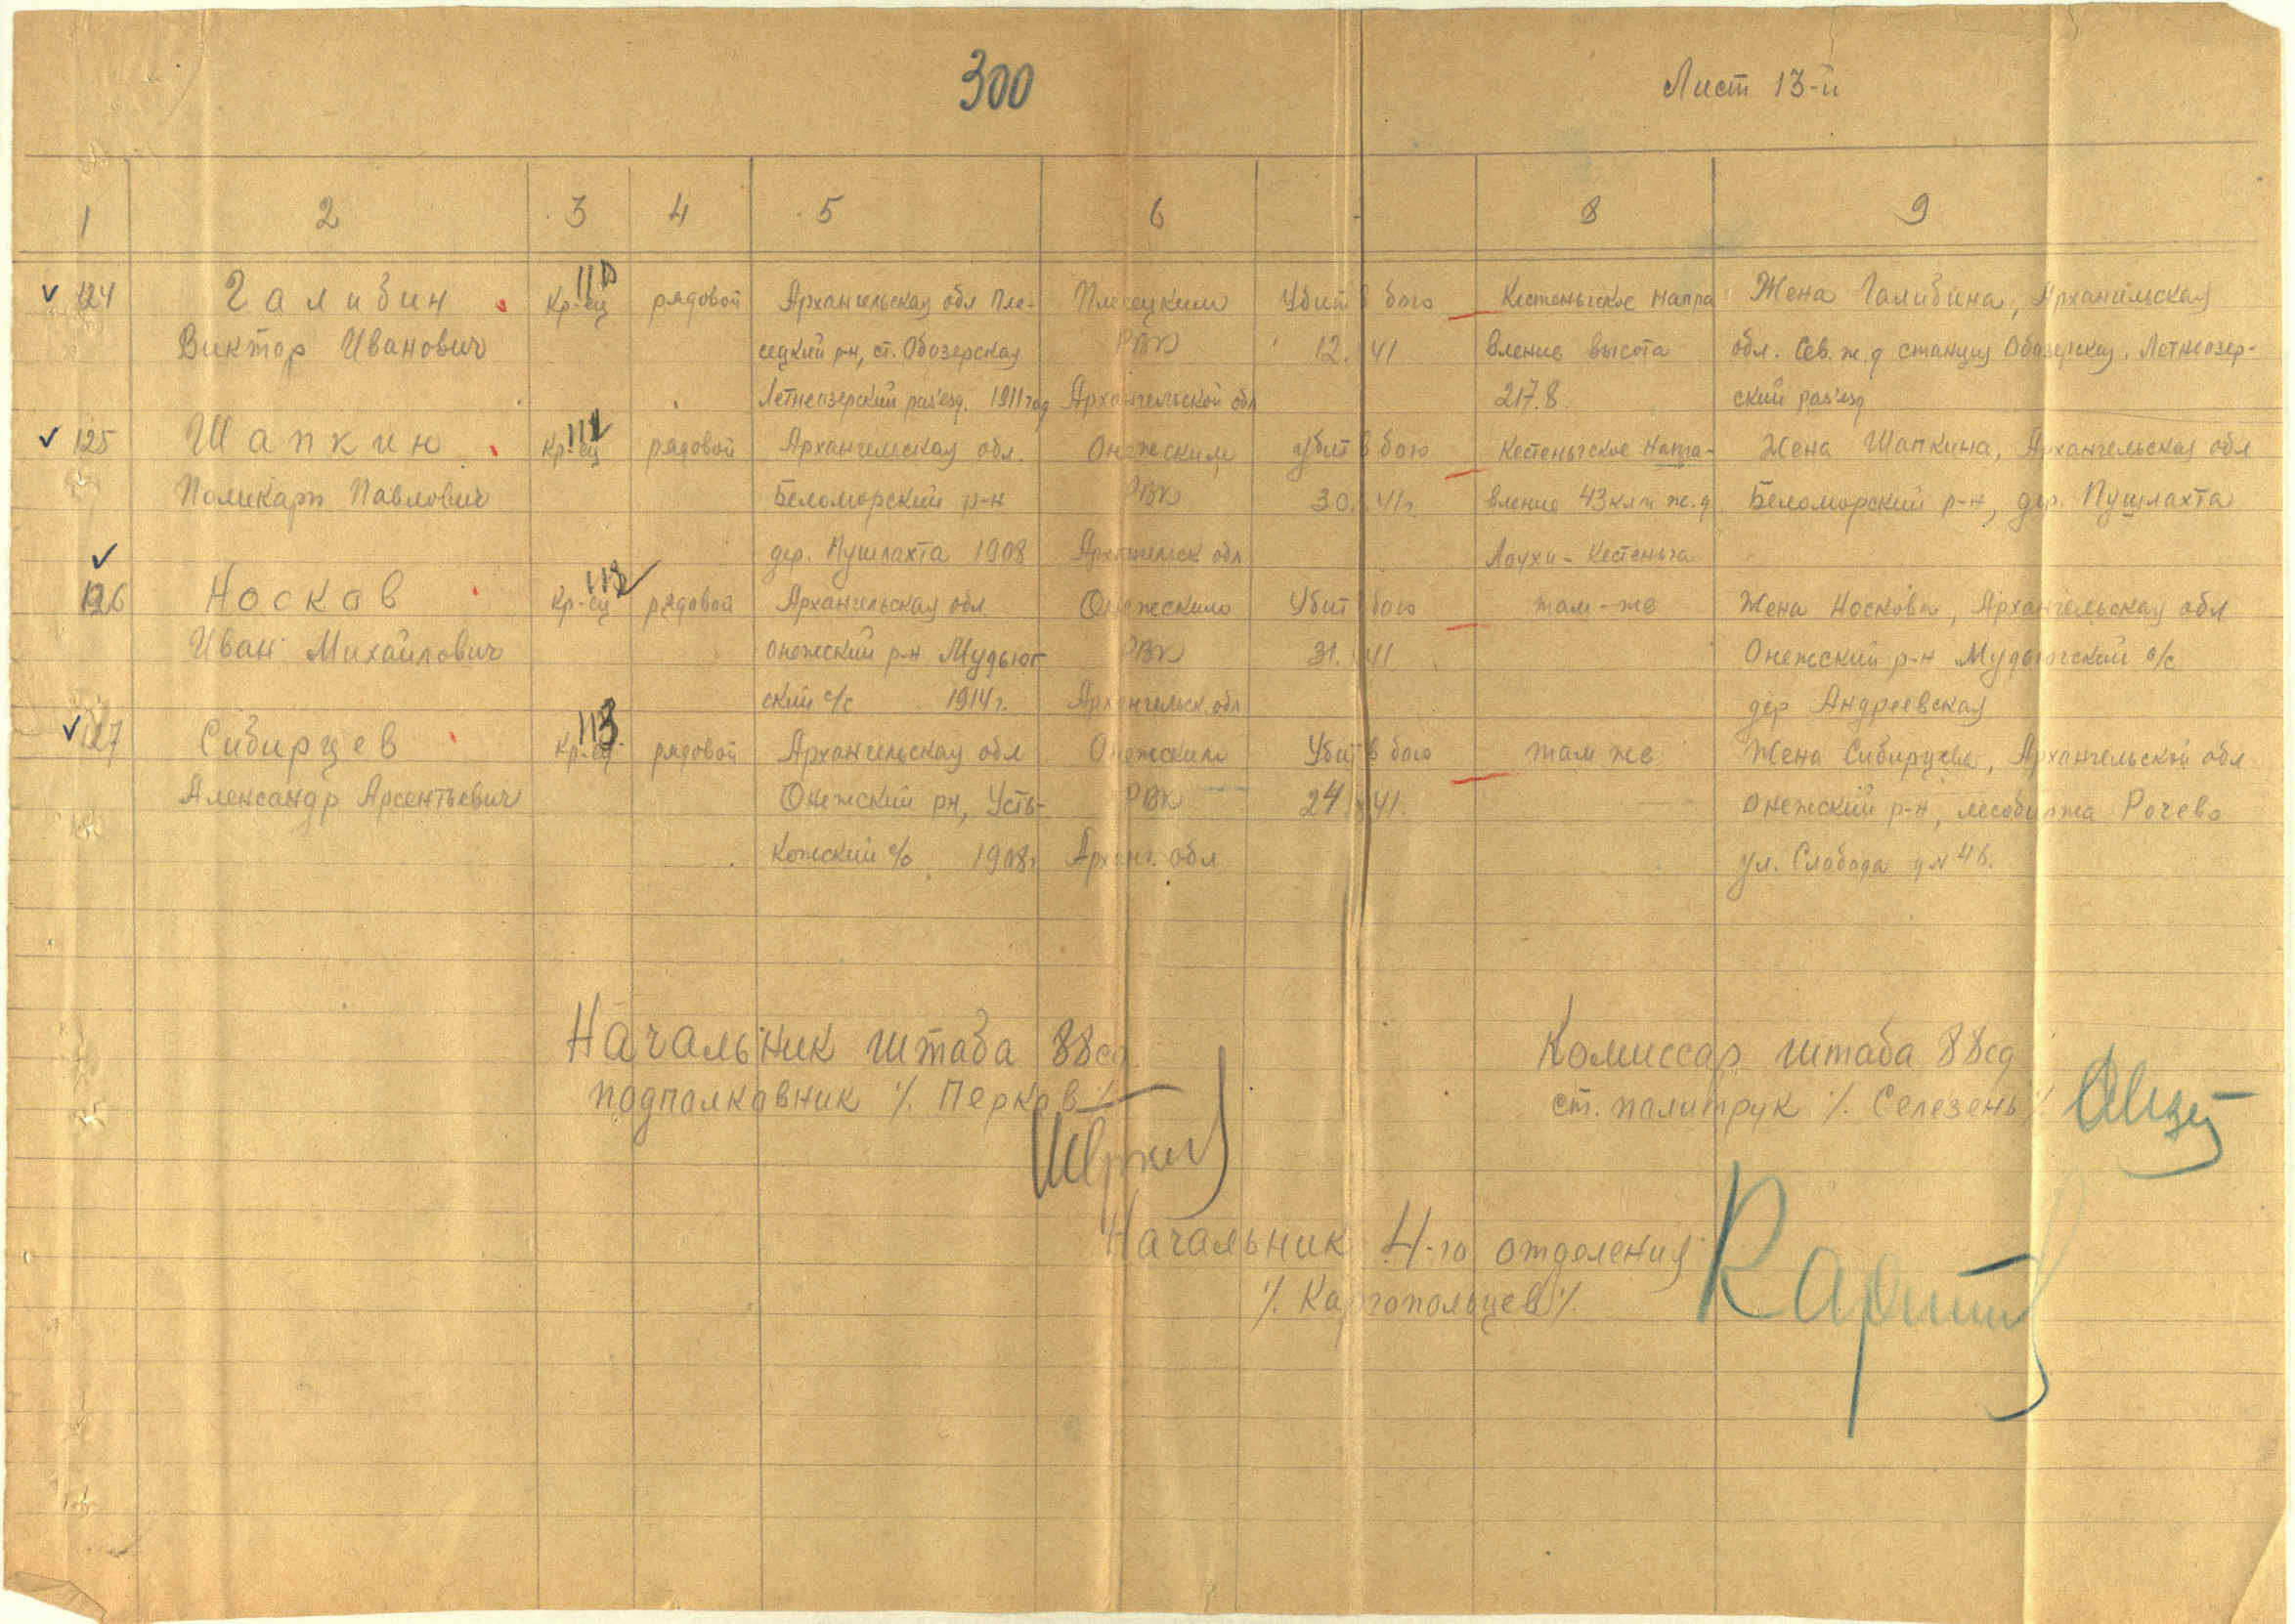 300
Лист 13-й
1 2 3 4 5 6 8 9
124 Галибин Кр-ец рядовой Архангельская обл Пле- Плесецким Убит в бою Кестеньгское напра Жена Галибина, Архангельская
Виктор Иванович сецкий р-н, ст. Обозерская РВК 12. 41 вление высота обл. Сев. ж.д станция Обозерская, Летнеозер-
Летнеозерский раз'езд. 1911 год Архангельской обл 217.8 ский раз'езд
125 Шапкин Кр-ец рядовой Архангельская обл. Онежским Убит в бою Кестеньгское напра- Жена Шапкина, Архангельская обл
Поликарп Павлович Беломорский р-н РВК 30. 41г. вление 43 клм ж.д Беломорский р-н, дер. Пушлахта
дер. Пушлахта 1908 Архангельск обл Лоухи - Кестеньга
126 Носков Кр-ец рядовой Архангельская обл. Онежским Убит бою там-же Жена Носкова, Архангельская обл
Иван Михайлович Онежский р-н Мудьюг- РВК 31. 41 Онежский р-н Мудьюгский с/с
ский с/с 1914г. Архангельск. обл дер Андреевская
127 Сибирцев Кр-ец рядовой Архангельская обл Онежским Убит в бою там же Жена Сибирцева, Архангельской обл
Александр Арсентьевич Онежский рн, Усть- РВК 24. 41. Онежский р-н, лесобиржа Рочево
Кожский с/с 1908г Арханг. обл ул. Слобода
Начальник штаба 88сд
подполковник /. Перков /.
Комиссар штаба 88сд
ст. политрук /. Селезень /.
Начальник 4-го отделения
/. Каргопольцев /.